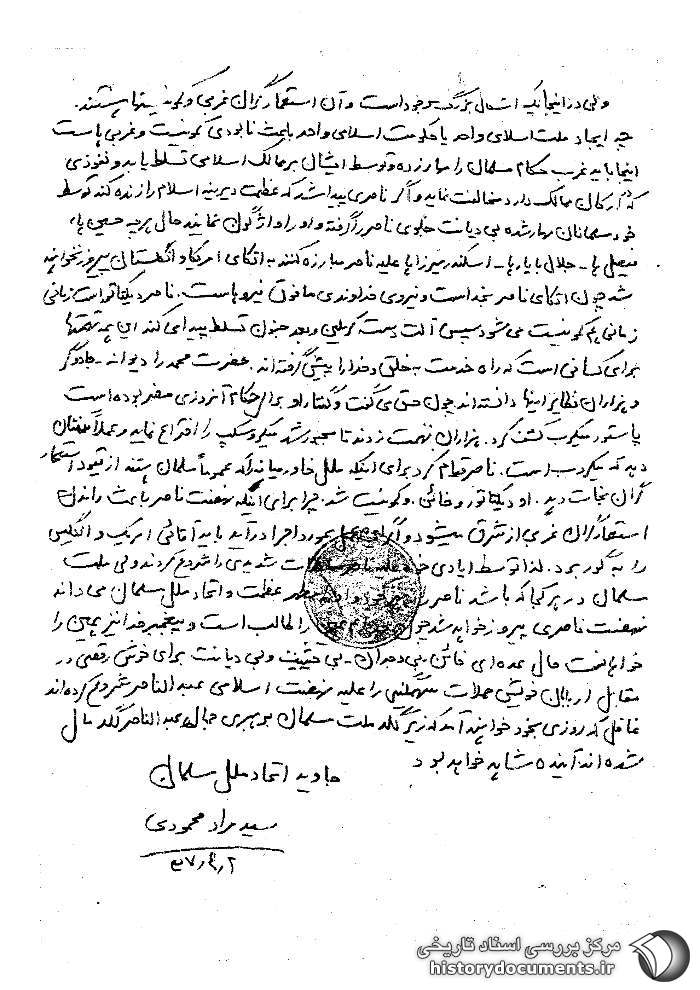 ولی در اینجا یک اشکال بزرگ موجود است و آن استعمارگران غربی و کمونیستها هستند.
چه ایجاد ملت اسلامی واحد یا حکومت اسلامی واحد باعث نابودی کمونیست و غربی هاست
اینجا باید غرب حکام مسلمان را مبارزه و توسط ایشان بر ممالک اسلامی تسلط یابد و نفوذی
که در کال ممالک دارد مخالفت نماید و اگر ناصری پیدا شد که عظمت دیرینه اسلام را زنده کند توسط
خود مسلمانان مهار شده بی دیانت جلوی ناصر را گرفته و او را واژگون نمایند حال هر چه حسین ها،
فیصل ها - جلال بایارها - اسکندر میرزاها علیه ناصر مبارزه کنند به اتکای امریکا و انگلستان پیروز نخواهند
شد چون اتکای ناصر بخداست و نیروی خداوندی مافوق نیروهاست. ناصر دیکتاتور است زمانی
زمانی هم کمونیست می شود سپس آلت دست کرملین و بعد جنون تسلط پیدا می کند این همه تهمتها
برای کسانی است که راه خدمت به خلق و خدا را پیش گرفته اند. حضرت محمد را دیوانه - جادوگر
و هزاران نظایر اینها دانسته اند چون حق می گفت و گفتار او برای حکام آنروزی مضر بوده است
پاستور میکرب کشف کرد. هزاران تهمت زدند تا مجبور شد میکروسکپ را اختراع نماید و عملاً نشان
دید که میکرب است. ناصر قیام کرد برای اینکه ملل خاورمیانه را که عموماً مسلمان هستند از قیود استعمار
گران نجات دهد. او دیکتاتور و خائن و کمونیست شد. چرا برای اینکه نهضت ناصر باعث راندن
استعمارگران غربی از شرق میشود و اگر این عمل بمورد اجرا درآید باید آقائی امریک و انگلیس
را به گور برد. لذا توسط ایادی خود علیه ناصر حملات شدیدی را شروع کردند ولی ملت
مسلمان در هر کجا که باشد ناصر را عظمت و اتحاد ملل مسلمان می داند
نهضت ناصری پیروز خواهد شد چون را طالب است و پیغمبر خدا نیز همین را
خواهانست حال عده ای خائن بی وجدان - بی حیثیت و بی دیانت برای خوش رقصی در
مقابل اربابان خویش حملات سهمگینی را علیه نهضت اسلامی عبدالناصر شروع کرده اند
غافل که روزی بخود خواهند آمد که زیر لگد ملت مسلمان به رهبری جمال عبدالناصر لگدمال
شده اند آینده شاهد خواهد بود
جاوید اتحاد ملل مسلمان
سید مراد محمودی
۳۷٫۴٫۲
مرکز بررسی اسناد تاریخی
historydocuments.ir